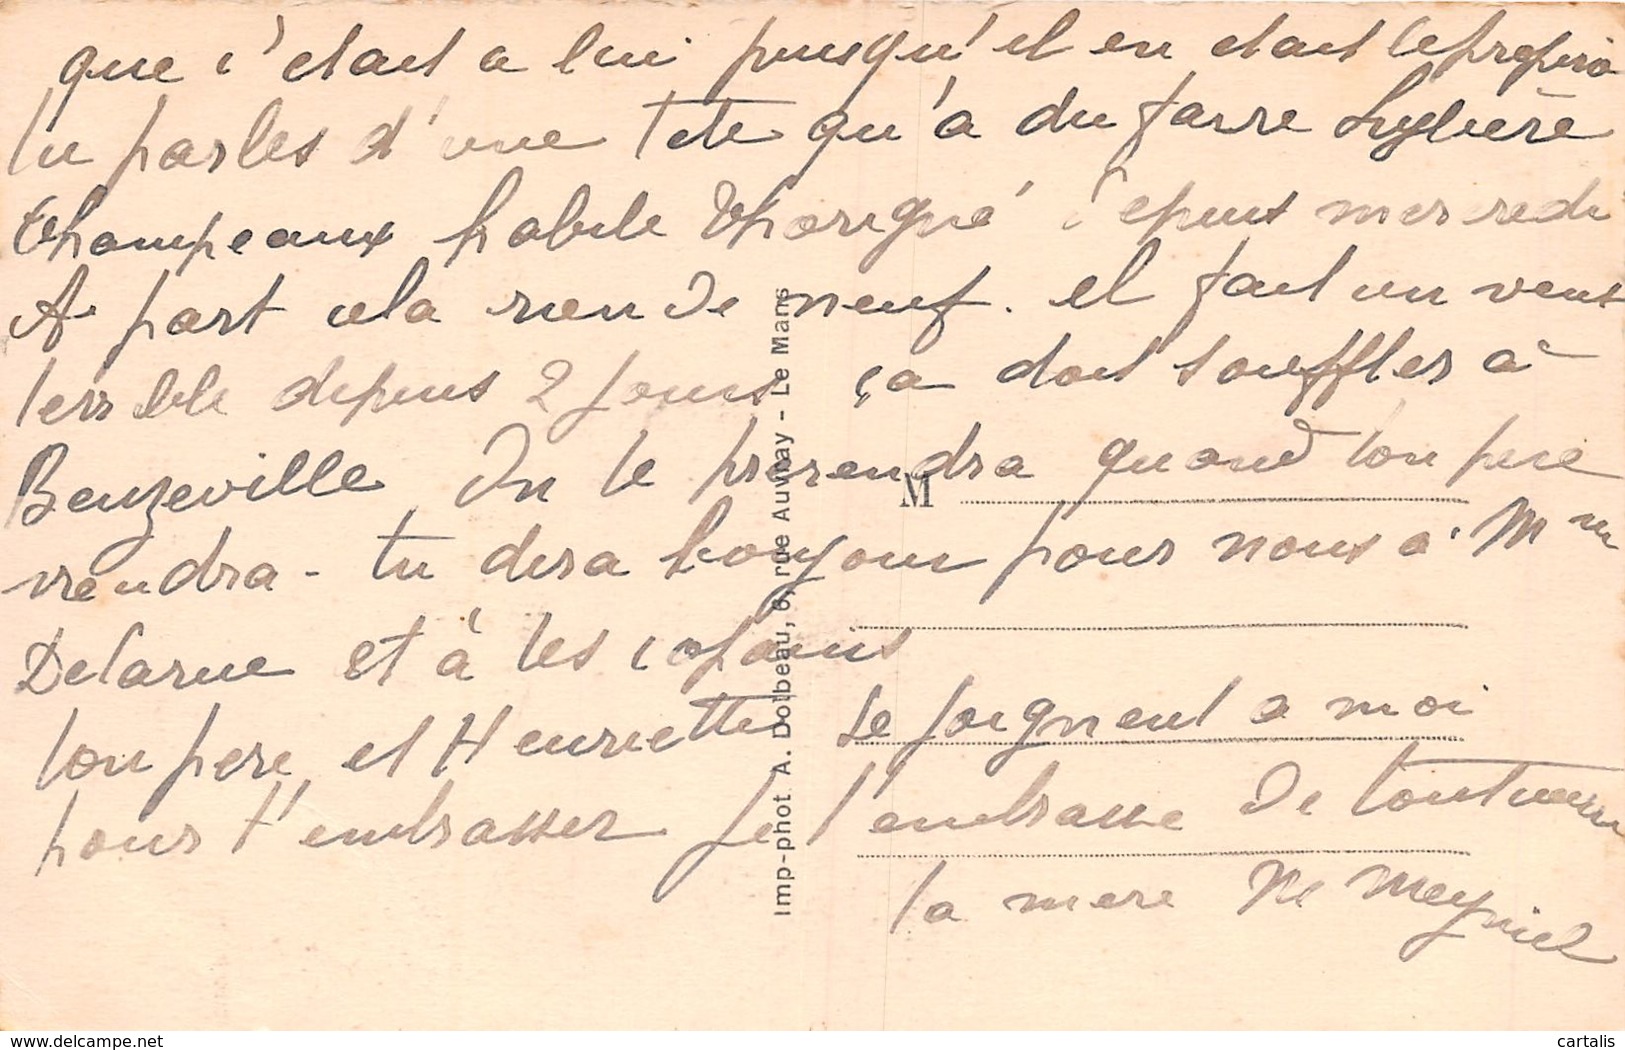 que c'etait a lui puisqu'il en etait le proprio
tu parles d'une Tete qu'a du faire
Champeaux habite Thorigné depuis mercredi
A part cela rien de neuf. il fait un vent
terrible depuis 2 jours ça doit souffler à
Benzeville On te prerendra quand ton pere
viendra - tu dira bonjour pour nous a Mme
Delarue et à tes copains
ton pere et Henriette se joignent a moi
pour t'embrasser Je t'embrasse de tout
ta mere Me Meyniel
M
Imp-phot A. Dolbeau, 6, rue Auvray - Le Mans
cartalis
delcampe.net